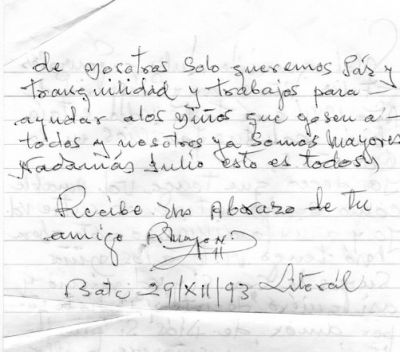 de nosotras solo queremos Páz y
tranquilidad y trabajos para
ayudar alos niños que gosen a -
todos y nosotros ya somos mayores
Nadamás Julio esto es todos
Recibe un Abrazo de tu
amigo
Bata 29/XII/93 Litorál